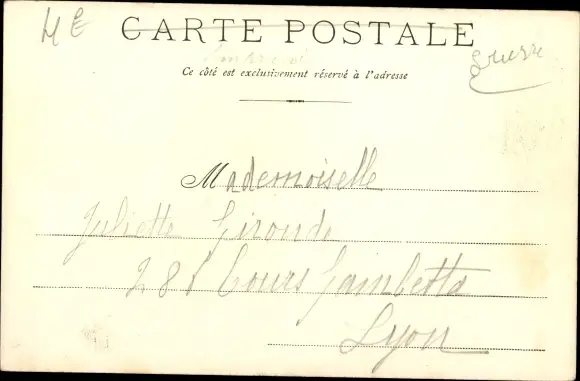 ME
CARTE POSTALE
Ce côté est exclusivement réservé à l'adresse
Mademoiselle
Juliette Gironde
281 Cours Gambetta
Lyon